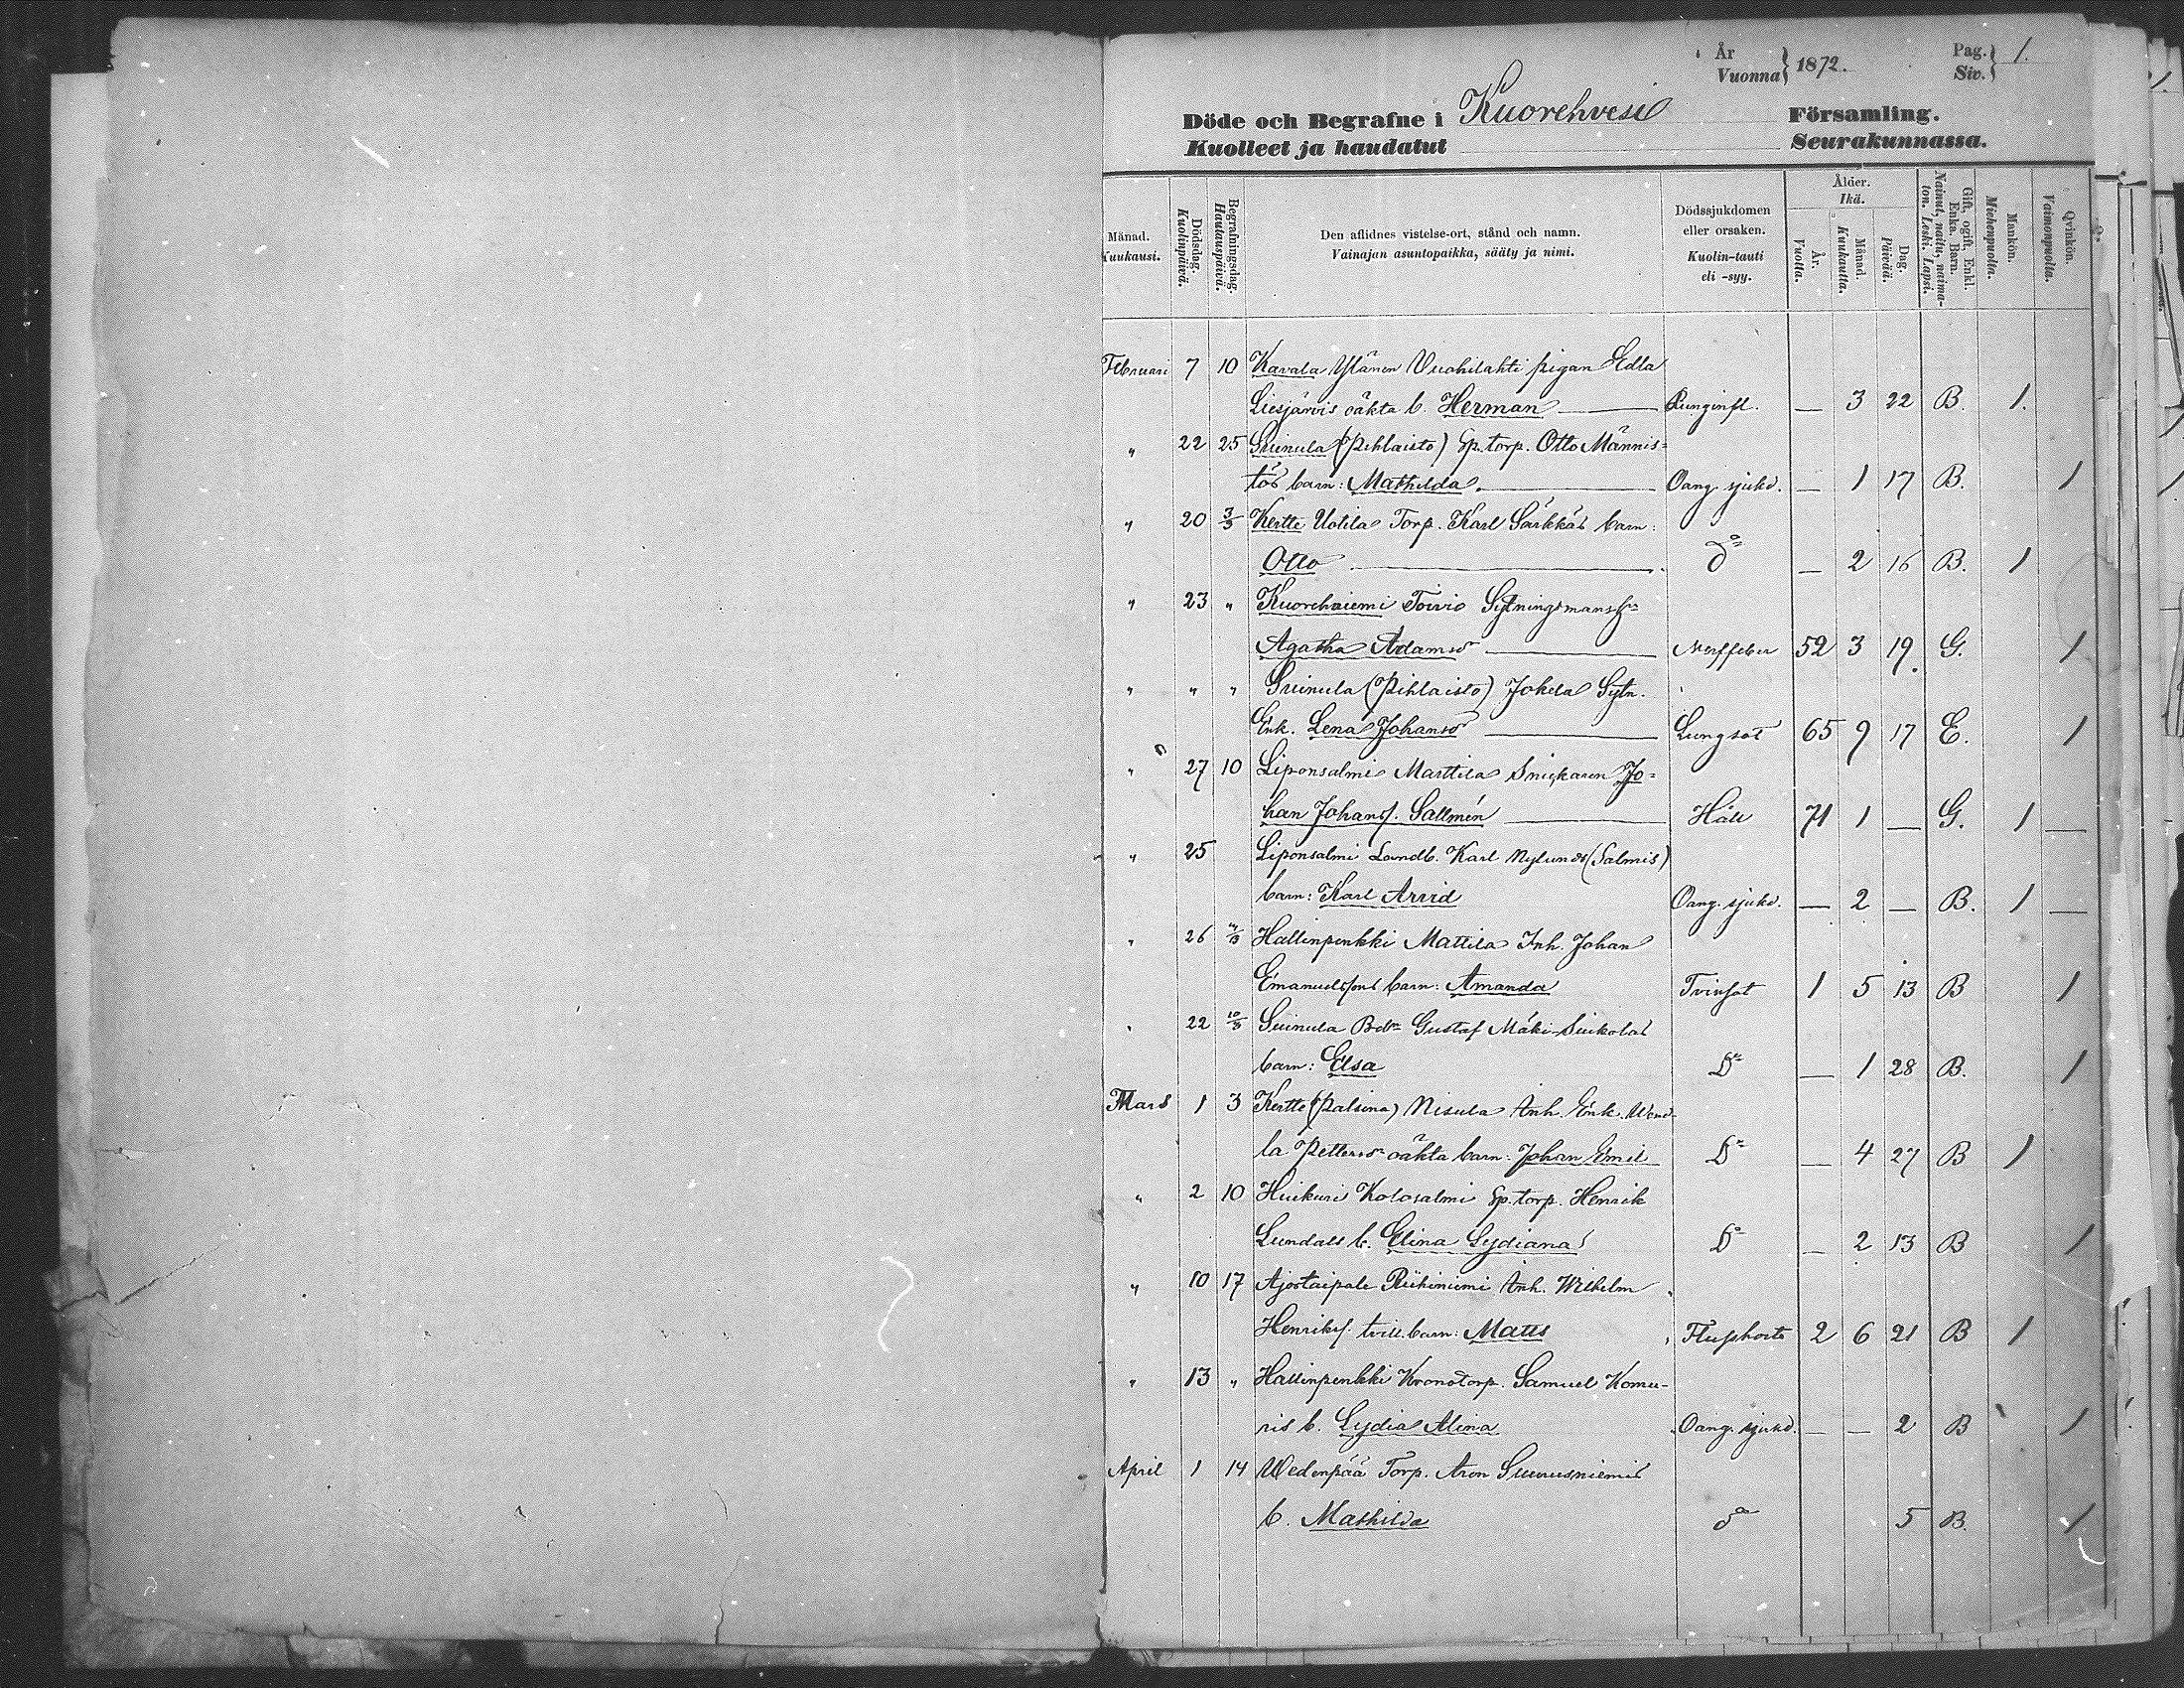 År
Vuonna } 1872.
Pag.
Siv. } 1.
Döde och Begrafne i Kuorehvesi Församling.
Kuolleet ja haudatut Seurakunnassa.
Månad.
Kuukausi.
Dödsdag.
Kuolinpäivä.
Begrafningsdag.
Hautauspäivä.
Den aflidnes vistelse-ort, stånd och namn.
Vainajan asuntopaikka, sääty ja nimi.
Dödssjukdomen
eller orsaken.
Kuolin-tauti
eli -syy.
Ålder.
Ikä.
År.
Vuotta.
Månad.
Kuukautta.
Dag.
Päivää.
Gift, ogift, Enkl.
Enka. Barn.
Nainut, naitu, naima-
ton. Leski. Lapsi.
Mankön.
Miehenpuolta.
Qvinkön.
Vaimonpuolta.
Februari 7 10 Kavala Ylänen Vuohilahti pigan Edla
Liesjärvis oäkta b. Herman — Lunginfl. — 3 22 B. 1.
" 22 25 Suinula (Pihlaisto) Sp. torp. Otto Männis=
tös barn: Mathilda. — Oang. sjukd. — 1 17 B. 1
" 20 3/3 Kertte Uotila Torp. Karl Särkkäs barn:
Otto — d:o — 2 16 B. 1
" 23 " Kuoreniemi Toivio Sytningsmans h:u
Agatha Adamsd:r — Nerffeber 52 3 19 G. 1
" " " Suinula (Pihlaisto) Jokela Sytn.
Enk. Lena Johansd:r — Lungsot 65 9 17 E. 1
" 27 10 Liponsalmi Marttila Snickaren Jo=
han Johans. Sallmén — Håll 71 1 — G. 1 —
" 25 Liponsalmi Landb. Karl Nylunds (Salmis)
barn: Karl Arvid Oang. sjukd. — 2 — B. 1 —
" 26 Hallinpenkki Mattila Inh. Johan
Emanuelssons barn: Amanda Tvinsot 1 5 13 B 1
" 22 10/3 Suinula Bd:n Gustaf Mäki-Siukolas
barn: Elsa D:o — 1 28 B. 1
Mars 1 3 Kertte (Palsina) Nisula Inh. Enk. Wend-
la Pettersd:r oäkta barn: Johan Emil D:o — 4 27 B 1
" 2 10 Huikuri Kolosalmi Sp. torp. Henrik
Lundals b. Elina Lydiana D:o — 2 13 B 1
" 10 17 Ajostaipale Riihiniemi Inh. Wilhelm
Henriks. tvill. barn: Matts Flusshosta 2 6 21 B 1
" 13 " Hallinpenkki Kronotorp. Samuel Komu-
ris b. Lydia Alina Oang. sjukd. — — 2 B 1
April 1 14 Wedenpää Torp. Aron Suurusniemis
b. Mathilda d:o 5 B. 1